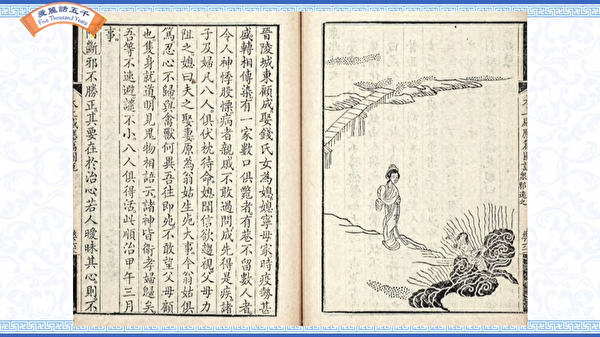 話五千
Five Thousand Years
晉陵城東顧成娶錢氏女為媳媳寧母家時疫勢甚
盛轉相傳染有一家數口俱斃者有巷不留數人者
令人神悸股慄病者親戚不敢過問成先得是疾諸
子及婦凡八人俱伏枕待命媳聞信欲趨視父母力
阻之媳曰夫之娶妻原為翁姑生死大事今翁姑俱
篤忍心不歸與禽獸何異吾往即死不敢望父母顧
也隻身就道明見鬼物相語云諸神皆衛孝婦歸矣
吾等不速避譴不小八人俱得活此順治甲午三月
事
斷邪不勝正其要在於治心若人曖昧其心則不